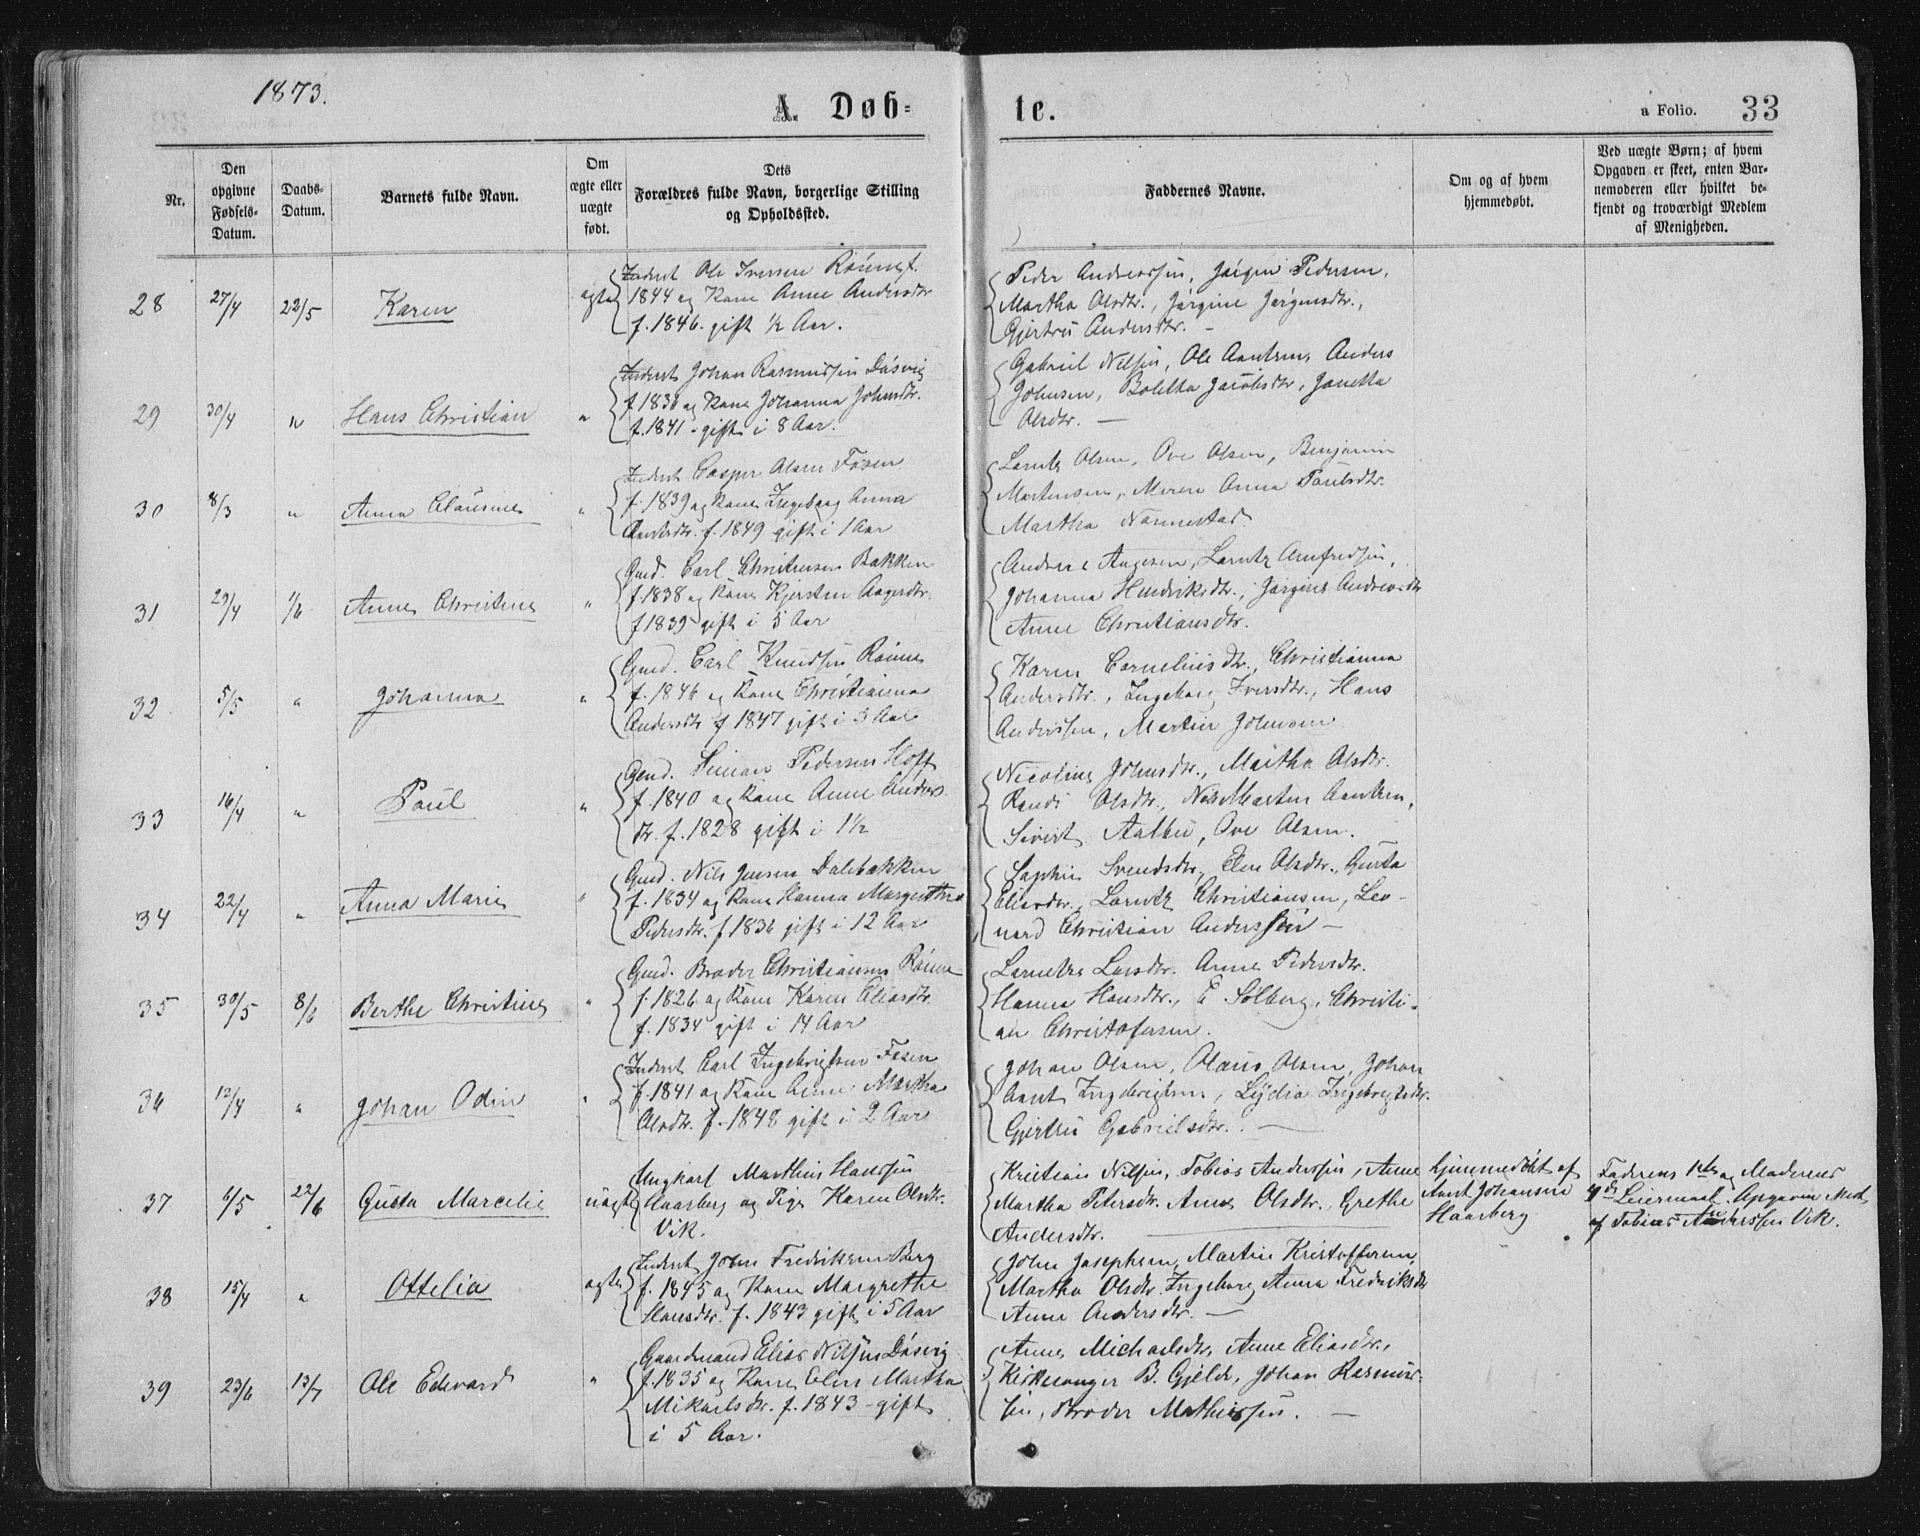 1873.
A Døb=
te.
a Folio. 33
Nr.
Den opgivne Fødsels-Datum.
Daabs-Datum.
Barnets fulde Navn.
Om ægte eller uægte født.
Dets Forældres fulde Navn, borgerlige Stilling og Opholdssted.
Faddernes Navne.
Om og af hvem hjemmedøbt.
Ved uægte Børn; af hvem Opgaven er skeet, enten Barnemoderen eller hvilket bekjendt og troværdigt Medlem af Menigheden.
28 27/4 22/5 Karen ægte
Inderst Ole Iversen
1844 og Kone Anne Andersdtr
f. 1846 gift 1/2 Aar.
Peder Andreassen, Jørgen Pedersen,
Martha Olsdtr., Jørgine Jørgensdtr.,
Gjertru Andersdtr. -
29 30/4 " Hans Christian "
Inderst Johan Rasmussen Døsvig
f. 1836 og Kone Johanna Johnsdtr.
f. 1841 - gift i 8 Aar.
Gabriel Nilsen, Ole Aantsen, Anders
Johnsen, Boletha Jacobsdtr, Janetta
Olsdtr. -
30 8/3 " Anna Clausine "
Inderst Casper Olsen Fosen
f. 1839 og Kone Ingeborg Anna
f. 1849 gift i 1 Aar
Larntz Olsen, Ove Olsen, Benjamin
Martensen, Anna Paulsdtr.
Martha Nannestad
31 29/4 1/6 Anne Christine "
Gmd. Carl Christensen Bakken
f. 1838 og Kone Kjersten Aagesdtr.
f 1839 gift i 5 Aar
Andreas Aagesen, Larntz Arnfredsen,
Johanna Hendriksdtr., Jørgine Andreasdtr
Anne Christiansdtr.
32 5/5 " Johanna "
Gmd. Carl Knudsen Rønne
f. 1846 og Kone Christianna
Andersdtr f 1847 gift i 3 Aar
Karen Corneliusdtr., Christianna
Andersdtr., Ingeborg Iversdtr., Hans
Anderssen, Martin Johnsen
33 16/4 " Paul "
Gmd. Simon Pedersen Hoff
f. 1840 og Kone Anne Anders
dtr. f. 1828 gift i 1 1/2
Nicoline Johnsdtr., Martha Olsdtr.
Randi Olsdtr., Nils Martin Aantsen,
Sivert Aalbu, Ove Olsen.
34 22/4 " Anna Marie "
Gmd. Nils Jensen Dalebakken
f. 1834 og Kone Hanna Margrethe
Pedersdtr. f 1836 gift i 12 Aar
Sophie Svendsdtr, Elen Olsdtr., Gusta
Eliasdtr. Larntz Christiansen, Leo-
nard Christian Anderssen -
35 30/5 8/6 Berthe Christine "
Gmd. Broder Christiansen Rønne
f. 1826 og Kone Karen Eliasdtr.
f. 1834 gift i 14 Aar
Larntze Larsdtr. Anne Pedersdtr.
Hanna Hansdtr., E Solberg, Christi-
an Christofersen.
36 12/4 " Johan Odin "
Inderst Carl Ingebrigtsen Fosen
f. 1841 og Kone Anne Martha
Olsdtr. f. 1848 gift i 2 Aar
Johan Olsen, Olaus Olsen, Johan
Aant Ingebrigtsen, Lydia Ingebrigtsdtr.
Gjertru Gabrielsdtr. -
37 6/5 22/6 Gusta Marcelie uægte
Ungkarl Marthin Hanssen
Haarberg og Pige Karen Olsdtr.
Vik.
Kristian Nilsen, Tobias Anderssen, Anne
Martha Petersdtr. Anne Olsdtr., Grethe
Andersdtr.
hjemmedøbt af
Aant Johansen
Haarberg
Faderens 1ste og Moderens
Leiermaal. Opgaven
af Tobias Anderssen Vik.
38 15/4 " Ottelia ægte
Inderst John Fredriksen Berg
f. 1845 og Kone Margrethe
Hansdtr. f. 1843 gift i 5 Aar
John Josephsen, Martin Kristoffersen,
Martha Olsdtr. Ingeborg Anna Fredriksdtr
Anne Andersdtr. -
39 23/6 13/7 Ole Edvard "
Gaardmand Elias Nilsen Døsvig
f. 1835 og Kone Elen Martha
Mikaelsdtr. f. 1843 - gift
i 5 Aar.
Anne Michaelsdtr, Anne Eliasdtr.,
Kirkesanger B. Gjelde, Johan Rasmus-
sen, Broder Mathissen. -